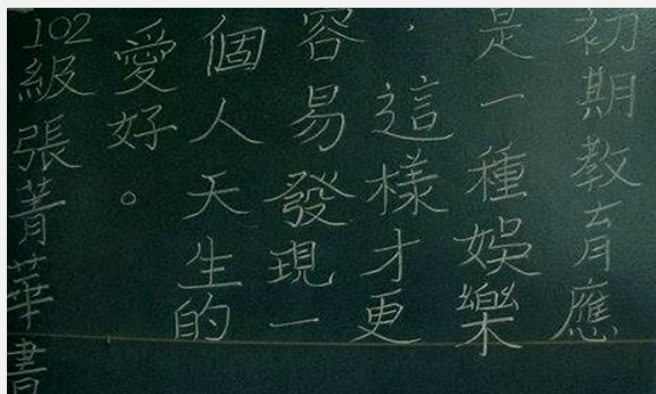 初期教育應
是一種娛樂
，這樣才更
容易發現一
個人天生的
愛好。
102級張菁華書